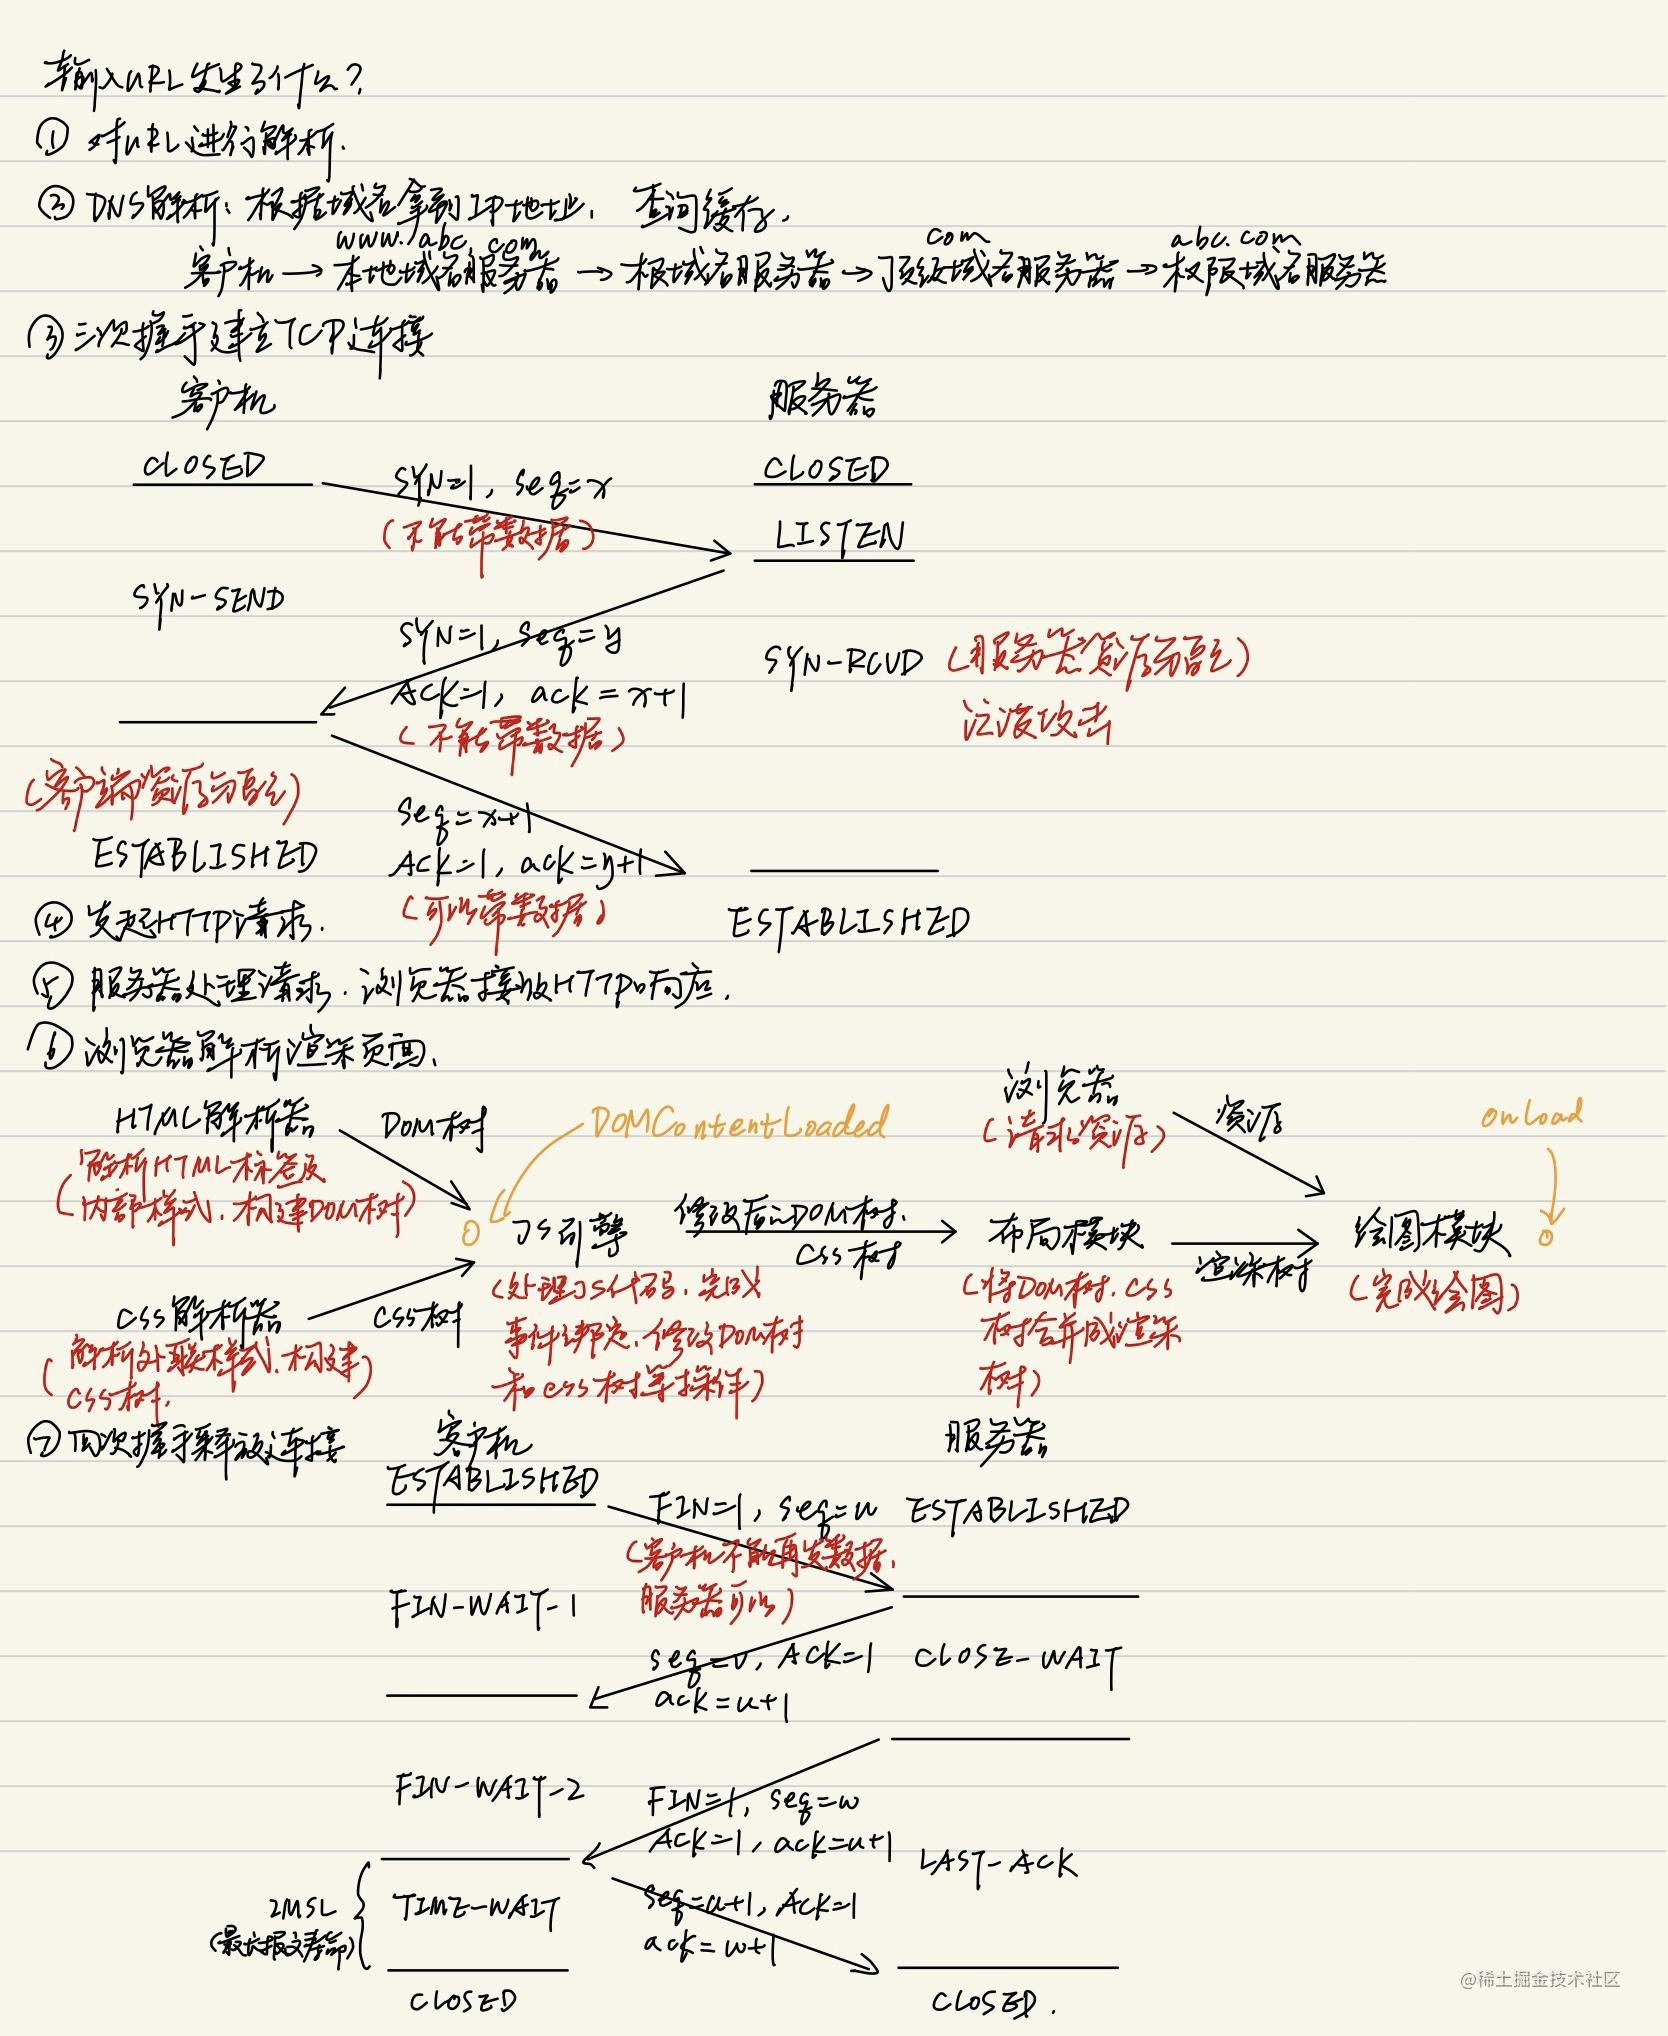 输入URL发生了什么?
① 对URL进行解析.
② DNS解析: 根据域名拿到IP地址, 查询缓存.
www. abc. com
com
abc. com
客户机 → 本地域名服务器 → 根域名服务器 → 顶级域名服务器 → 权限域名服务器
③ 三次握手建立TCP连接
客户机 服务器
CLOSED SYN=1, seq=x CLOSED
(不能带数据) LISTEN
SYN-SEND
SYN=1, seq=y SYN-RCVD (服务器资源分配)
ACK=1, ack=x+1 泛滥攻击
(不能带数据)
(客户端资源分配)
seq=x+1
ESTABLISHED ACK=1, ack=y+1
④ 发起HTTP请求. (可以带数据) ESTABLISHED
⑤ 服务器处理请求. 浏览器接收HTTP响应.
⑥ 浏览器解析渲染页面.
HTML解析器 DOM树 DOMContentLoaded 浏览器 资源 onload
(请求资源)
(解析HTML标签及
内部样式, 构建DOM树)
JS引擎 修改后的DOM树, 布局模块 绘图模块
CSS树 渲染树
(处理JS代码, 完成
事件绑定, 修改DOM树
和css树等操作)
(将DOM树, CSS
树合并成渲染
树)
(完成绘图)
CSS解析器 CSS树
(解析外联样式, 构建
CSS树.
⑦ 四次握手释放连接 客户机 服务器
ESTABLISHED FIN=1, seq=u ESTABLISHED
(客户机不能再发数据,
FIN-WAIT-1 服务器可以)
seq=v, ACK=1 CLOSE-WAIT
ack=u+1
FIN-WAIT-2 FIN=1, seq=w
ACK=1, ack=u+1 LAST-ACK
2MSL TIME-WAIT seq=u+1, ACK=1
(最长报文寿命) ack=w+1
CLOSED CLOSED.
@稀土掘金技术社区